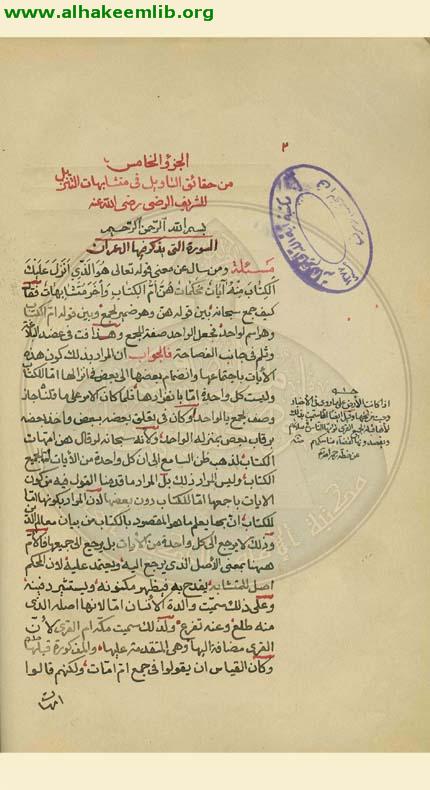 www.alhakeemlib.org
٢
الجزؤ الخامس
من حقائق التاويل فى متشابهات التنزيل
للشريف الرضى رضى الله عنه
بسم الله الرحمن الرحيم
السورة التى يذكر فيها آل عمران
مسئلة ومن سال عن معنى قوله تعالى هو الذى انزل عليك
الكتاب منه ايات محكمات هن ام الكتاب واخر متشابهات فقال
كيف جمع سبحانه بين قوله هن وهو ضمير لجمع وبين قوله ام الكتاب
وهو اسم لواحد فجعل الواحد صفة للجمع وهذا فت فى عضد البلاغة
وثلم فى جانب الفصاحة فالجواب ان المراد بذلك كون هذه
الايات باجتماعها وانضمام بعضها الى بعض فى انزالها اما للكتاب
وليست كل واحدة اما بانفرادها فلما كان الامر على ما قلنا جاز
وصف الجمع بالواحد وكان فى تعلق بعضه ببعض واخذ بعضه
برقاب بعض بمنزلة الواحد ولانه سبحانه لو قال هن امهات
الكتاب لذهب ظن السامع الى ان كل واحدة من الايات ام لجميع
الكتاب وليس المراد ذلك بل المراد ما قدمنا القول فيه من كون
الايات باجمعها اما للكتاب دون بعضها لان المراد بكونها اما
للكتاب ان بها يعلم ما هو المقصود بالكتاب من بيان معالم الدين
وذلك لا يرجع الى كل واحدة من الايات بل يرجع الى جميعها فالام
ههنا بمعنى الاصل الذى يرجع اليه ويعتمد عليه لان المحكم
اصل للمتشابه يقدح به فيظهر مكنونه ويستثير دفينه
وعلى ذلك سميت والدة الانسان اما لانها اصله الذى
منه طلع وعنه تفرع ولذلك سميت مكة ام القرى لان
القرى مضافة اليها وهى المتقدمة عليها والمذكورة قبلها
وكان القياس ان يقولوا فى جمع ام امات ولكنهم قالوا
امهات